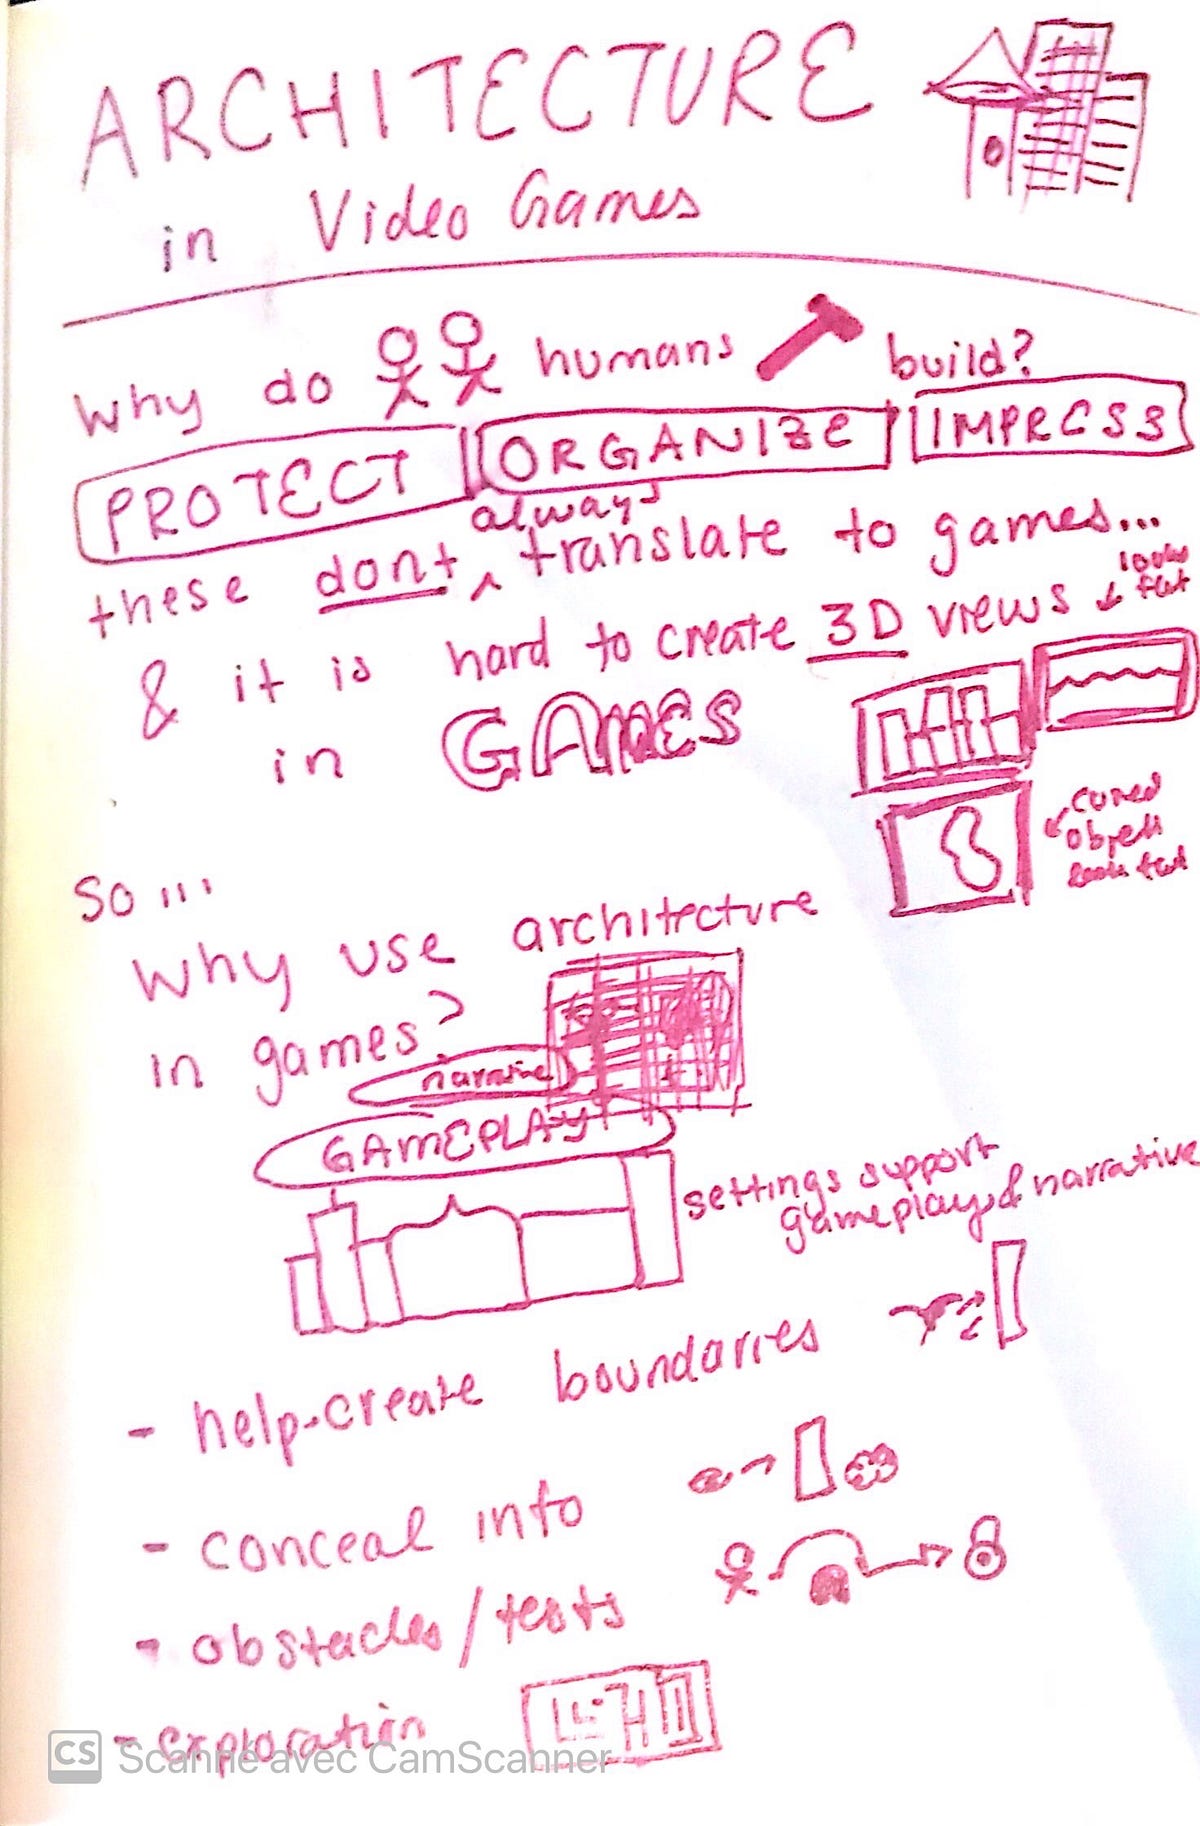 ARCHITECTURE
in Video Games
Why do humans build?
PROTECT ORGANIZE IMPRESS
always
these dont ^ translate to games...
& it is hard to create 3D views
looks
flat
in GAMES
curved
objects
look flat
so...
why use architecture
in games?
narrative
GAMEPLAY
settings support
gameplay & narrative
- help create boundaries
- conceal info
- obstacles/tests
- exploration
CS Scanné avec CamScanner